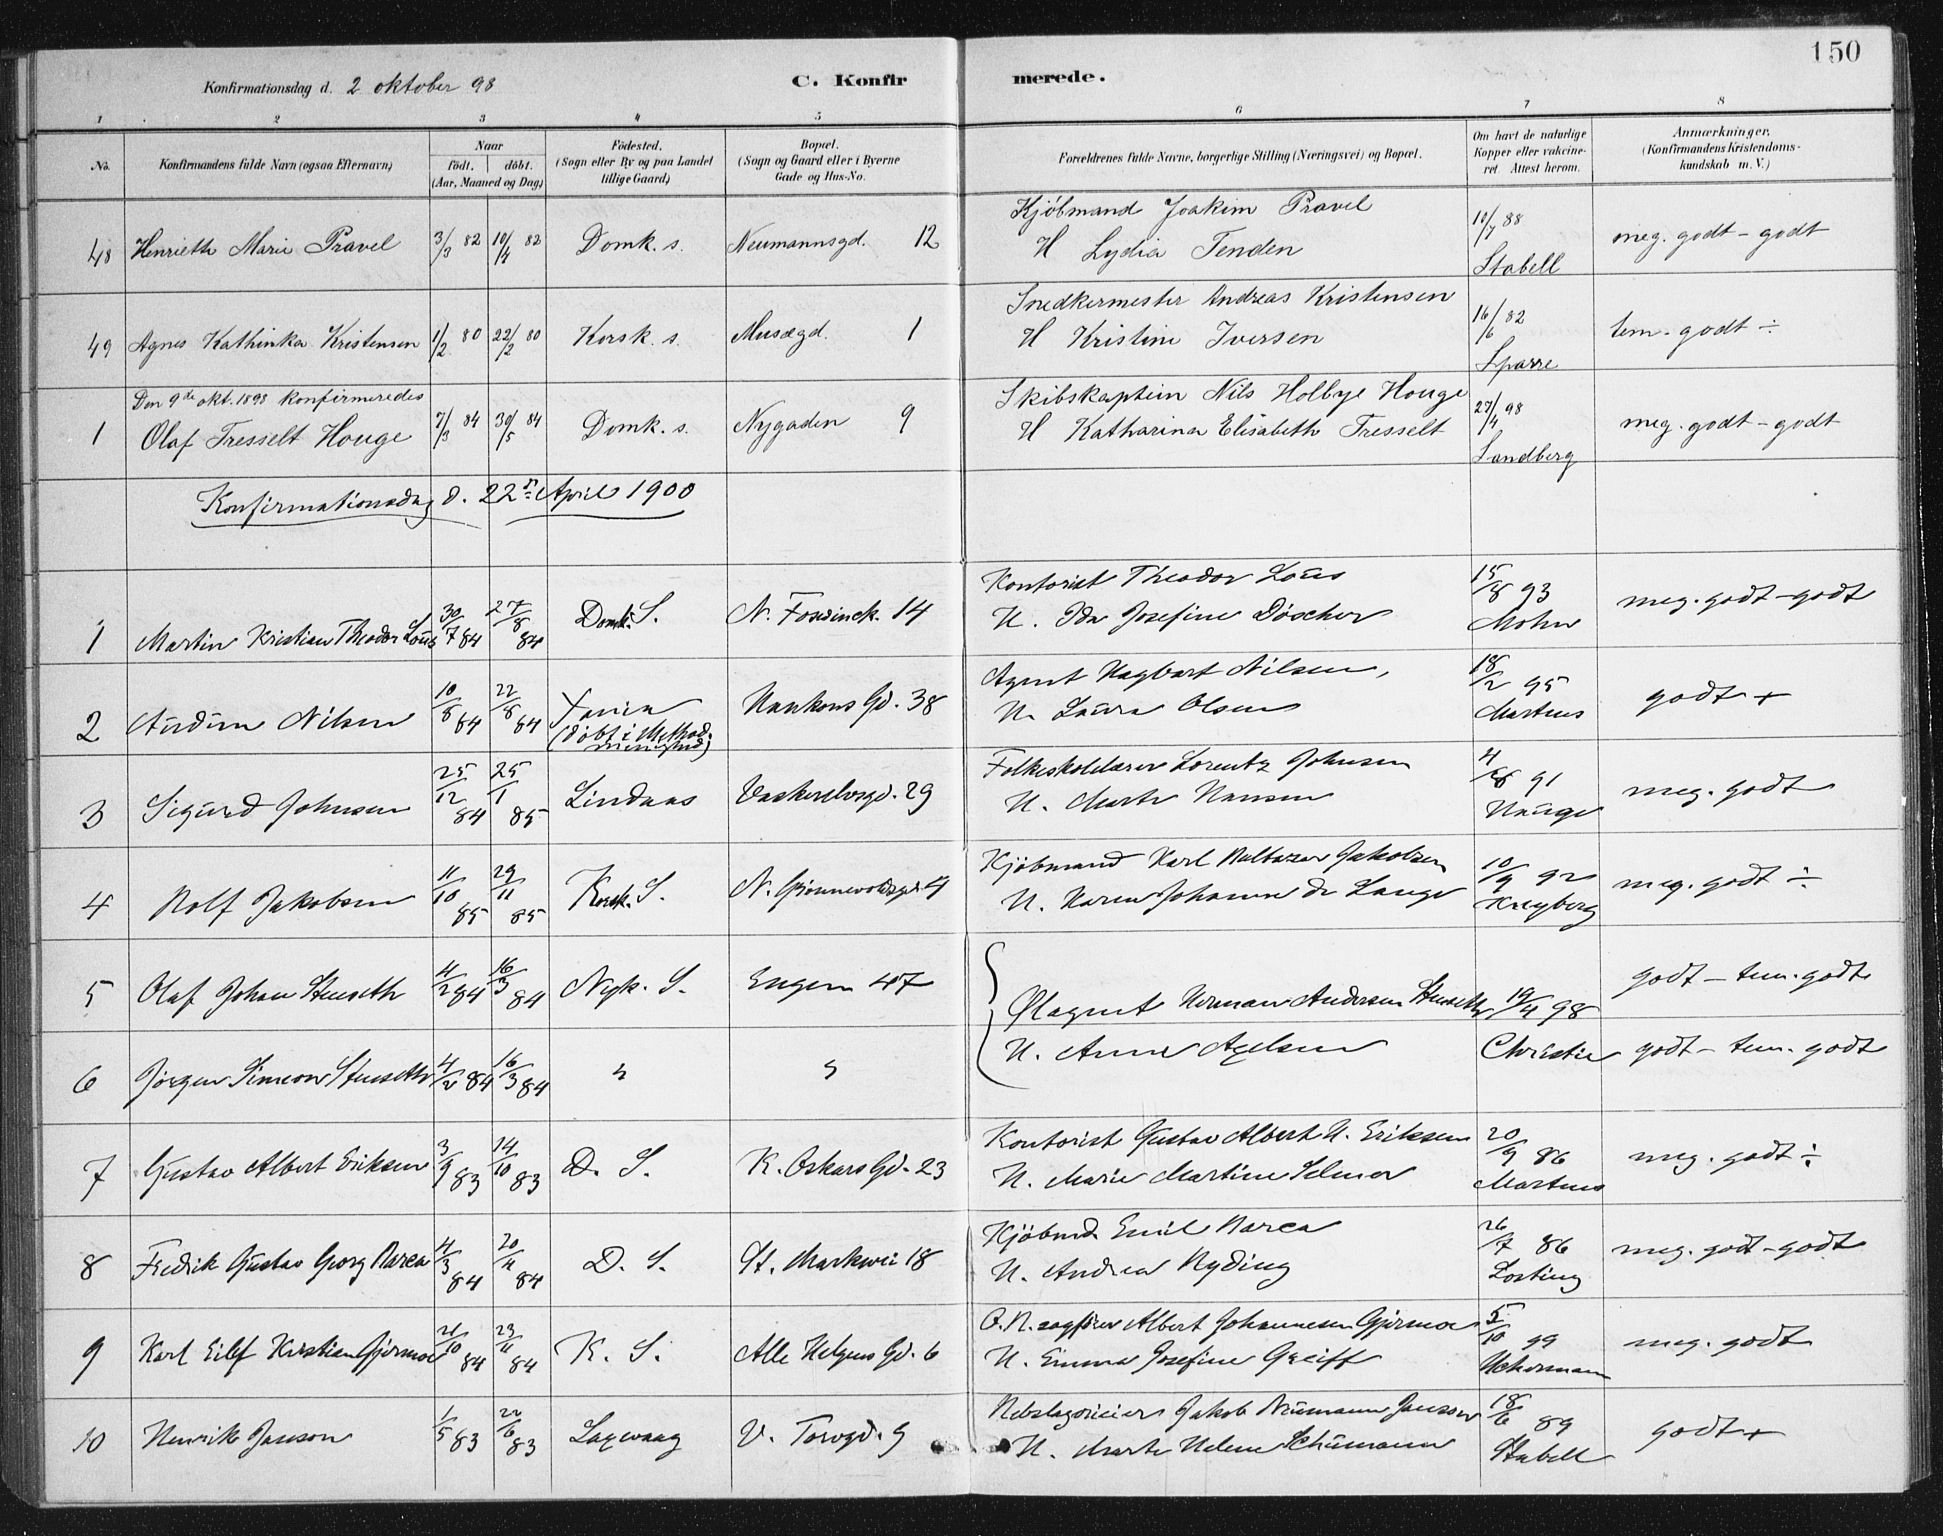 150
Konfirmationsdag d. 2 oktober 98 C. Konfirmerede.
1 2 3 4 5 6 7 8
No. Konfirmandens fulde Navn (ogsaa Efternavn)
Naar
födt. döbt.
(Aar, Maaned og Dag)
Födested.
(Sogn eller By og paa Landet
lillige Gaard)
Bopæl.
(Sogn og Gaard eller i Byerne
Gade og Hus-No.
Forældrenes fulde Navne, borgerlige Stilling (Næringsvei) og Bopæl.
Om havt de naturlige
Kopper eller vakcine-
ret. Attest herom.
Anmærkninger.
(Konfirmandens Kristendoms-
kundskab m. V.)
48 Henriette Marie Pravel 3/3 82 10/4 82 Domk. s. Neumannsgd. 12
Kjöbmand Joakim Pravel
H Lydia Tenden
10/7 88
Stabell
meg. godt - godt
49 Agnes Kathinka Kristensen 1/2 80 22/2 80 Korsk. s. Musægd. 1
Snedkermester Andreas Kristensen
H Kristine Iversen
16/6 82
Sparre
tem. godt ÷
Den 9de okt. 1898 konfirmeredes
1 Olaf Tresselt Houge 7/3 84 30/5 84 Domk. s. Nygaden 9
Skibskaptein Nils Holbye Houge
H Katharina Elisabeth Tresselt
27/4 98
Sandberg
meg. godt - godt
Konfirmationsdag d. 22n April 1900
1 Martin Kristian Theodor Loüs 30/7 84 27/8 84 Domk. S. N. Fosswinck. 14
Kontorist Theodor Loüs
H. Ida Josefine Döscher
15/8 93
Mohn
meg. godt - godt
2 Aüdün Nilsen 10/8 84 22/8 84 Xania
(döbt i Method.
menighed)
Haakons Gd. 38
Agent Hagbart Nilsen,
H. Laüra Olsen
18/2 95
Martens
godt +
3 Sigürd Johnsen 25/12 84 25/1 85 Lindaas Vaskerelvsgd. 29
Folkeskolelærer Lorentz Johnsen
H. Marte Hansen
4/8 91
Haüge
meg. godt
4 Rolf Jakobsen 11/10 85 29/11 85 Korsk. S. N. Gjönnevoldsgd. 4
Kjöbmand Karl Baltazar Jakobsen
H. Karen Johanne de Lange
10/9 92
Kreyberg
meg. godt ÷
5 Olaf Johan Stenseth 4/2 84 16/3 84 Nyk. S. Engen 47
Ølagent Herman Andersen Stenseth 19/4 98
godt - tem. godt
6 Jörgen Simeon Stenseth 4/2 84 16/3 84 " "
H. Anne Axelsen
Christie
godt - tem. godt
7 Güstav Albert Eriksen 3/9 83 14/10 83 D. S. K. Oskars Gd. 23
Kontorist Güstav Albert H. Eriksen
H. Marie Martine Selmer
20/9 86
Martens
meg. godt ÷
8 Fredrik Güstav Georg Narea 4/3 84 20/4 84 D. S. St. Markevei 18
Kjöbmd Emil Narea
H. Andrea Ryding
26/7 86
Losting
meg. godt - godt
9 Karl Eilef Kristian Gjörmoe 21/10 84 23/11 84 K. S. Alle Helgens Gd. 6
O.R. sagförer Albert Johannesen Gjörmoe
H. Emma Josefine Greiff
5/10 99
Ackerman
meg. godt
10 Henrik Janson 1/5 83 22/6 83 Laxevaag V. Torvgd. 9
Rebslagerieier Jakob Neümann Janson
H. Marte Helene Schümann
18/6 89
Stabell
godt +